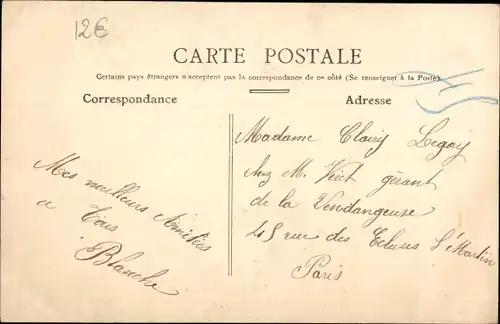 12€
CARTE POSTALE
Certains pays étrangers n'acceptent pas la correspondance de ce côté (Se renseigner à la Poste)
Correspondance
Adresse
Mes meilleurs Amitiés
a Tous
Blanche
Madame Clairy Legay
Chez M. Viet gérant
de la Vendangeuse
45 rue des Ecluses St Martin
Paris